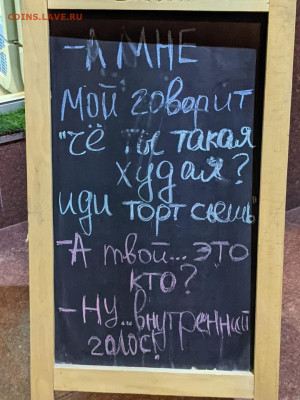 COINS.LAVE.RU
-А МНЕ
МОЙ ГОВОРИТ
"чё ты такая
худая?
иди торт съешь"
-А твой... это
кто?
-Ну... внутренний
голос!